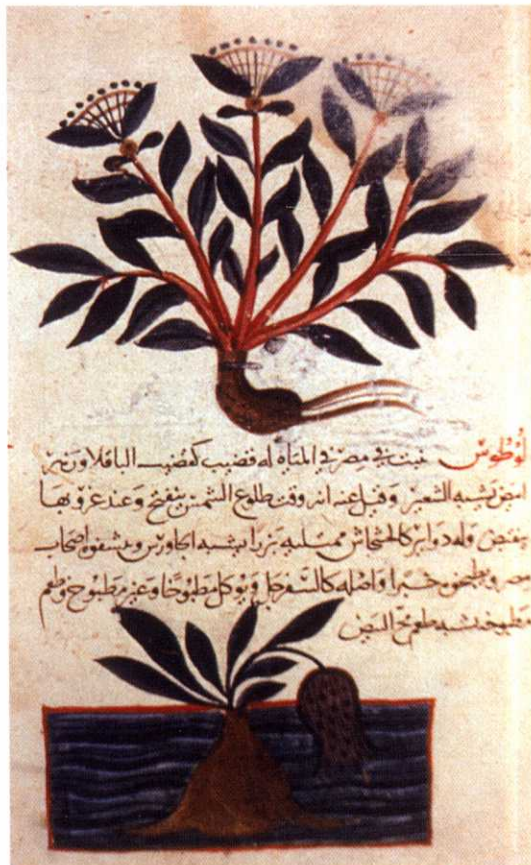 لوطوس ينبت في مصر في المياه له قضيب كقضيب الباقلا وزهر
ابيض يشبه الشعير وقيل عنه انه وقت طلوع الشمس يتفتح وعند غروبها
ينقبض وله دواير كالخشخاش ممتليه بزرا يشبه الجاورس ويشفوه اصحاب
مصر ويطبخوه خبزا واصله كالسفرجل ويوكل مطبوخا وغير مطبوخ وطعم
مطبوخه يشبه طعم مح البيض